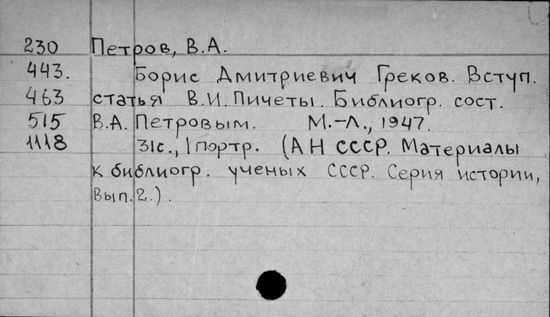 230 Петров, В.А.
443. Борис Дмитриевич Греков. Вступ.
463 статья В.И. Пичеты. Библиогр. сост.
515 В.А. Петровым. М.-Л., 1947.
1118 31с., 1 портр. (АН СССР. Материалы
к библиогр. ученых СССР. Серия истории,
вып. 2.).